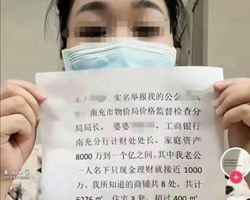 实名举报我的公公
南充市物价局价格监督检查分
局局长，婆婆 工商银行
南充分行计财处处长。家庭资产
8000 万到一个亿之间，其中我老公
一人名下只现金理财就接近 1000
万，我所知道的商铺共 8 处，共计
5276 ㎡，住宅 3 套，超过 400 ㎡